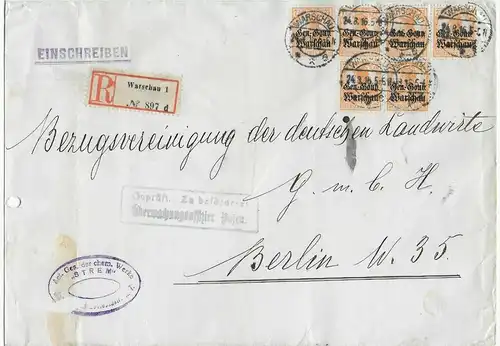 EINSCHREIBEN
R
Warschau 1
№ 897 d
WARSCHAU
24.8.16.5-
Gen.-Gouv.
Warschau
Gen.-Gouv.
Warschau
Gen.-Gouv.
Warschau
Gen.-Gouv.
Warschau
Gen.-Gouv.
Warschau
Gen.-Gouv.
Warschau
Bezugsvereinigung der deutschen Landwirte
G. m. b. H.
Geprüft. Zu befördern.
Überwachungsoffizier Posen.
Berlin W. 35.
Ges. der chem. Werke
„STREM"